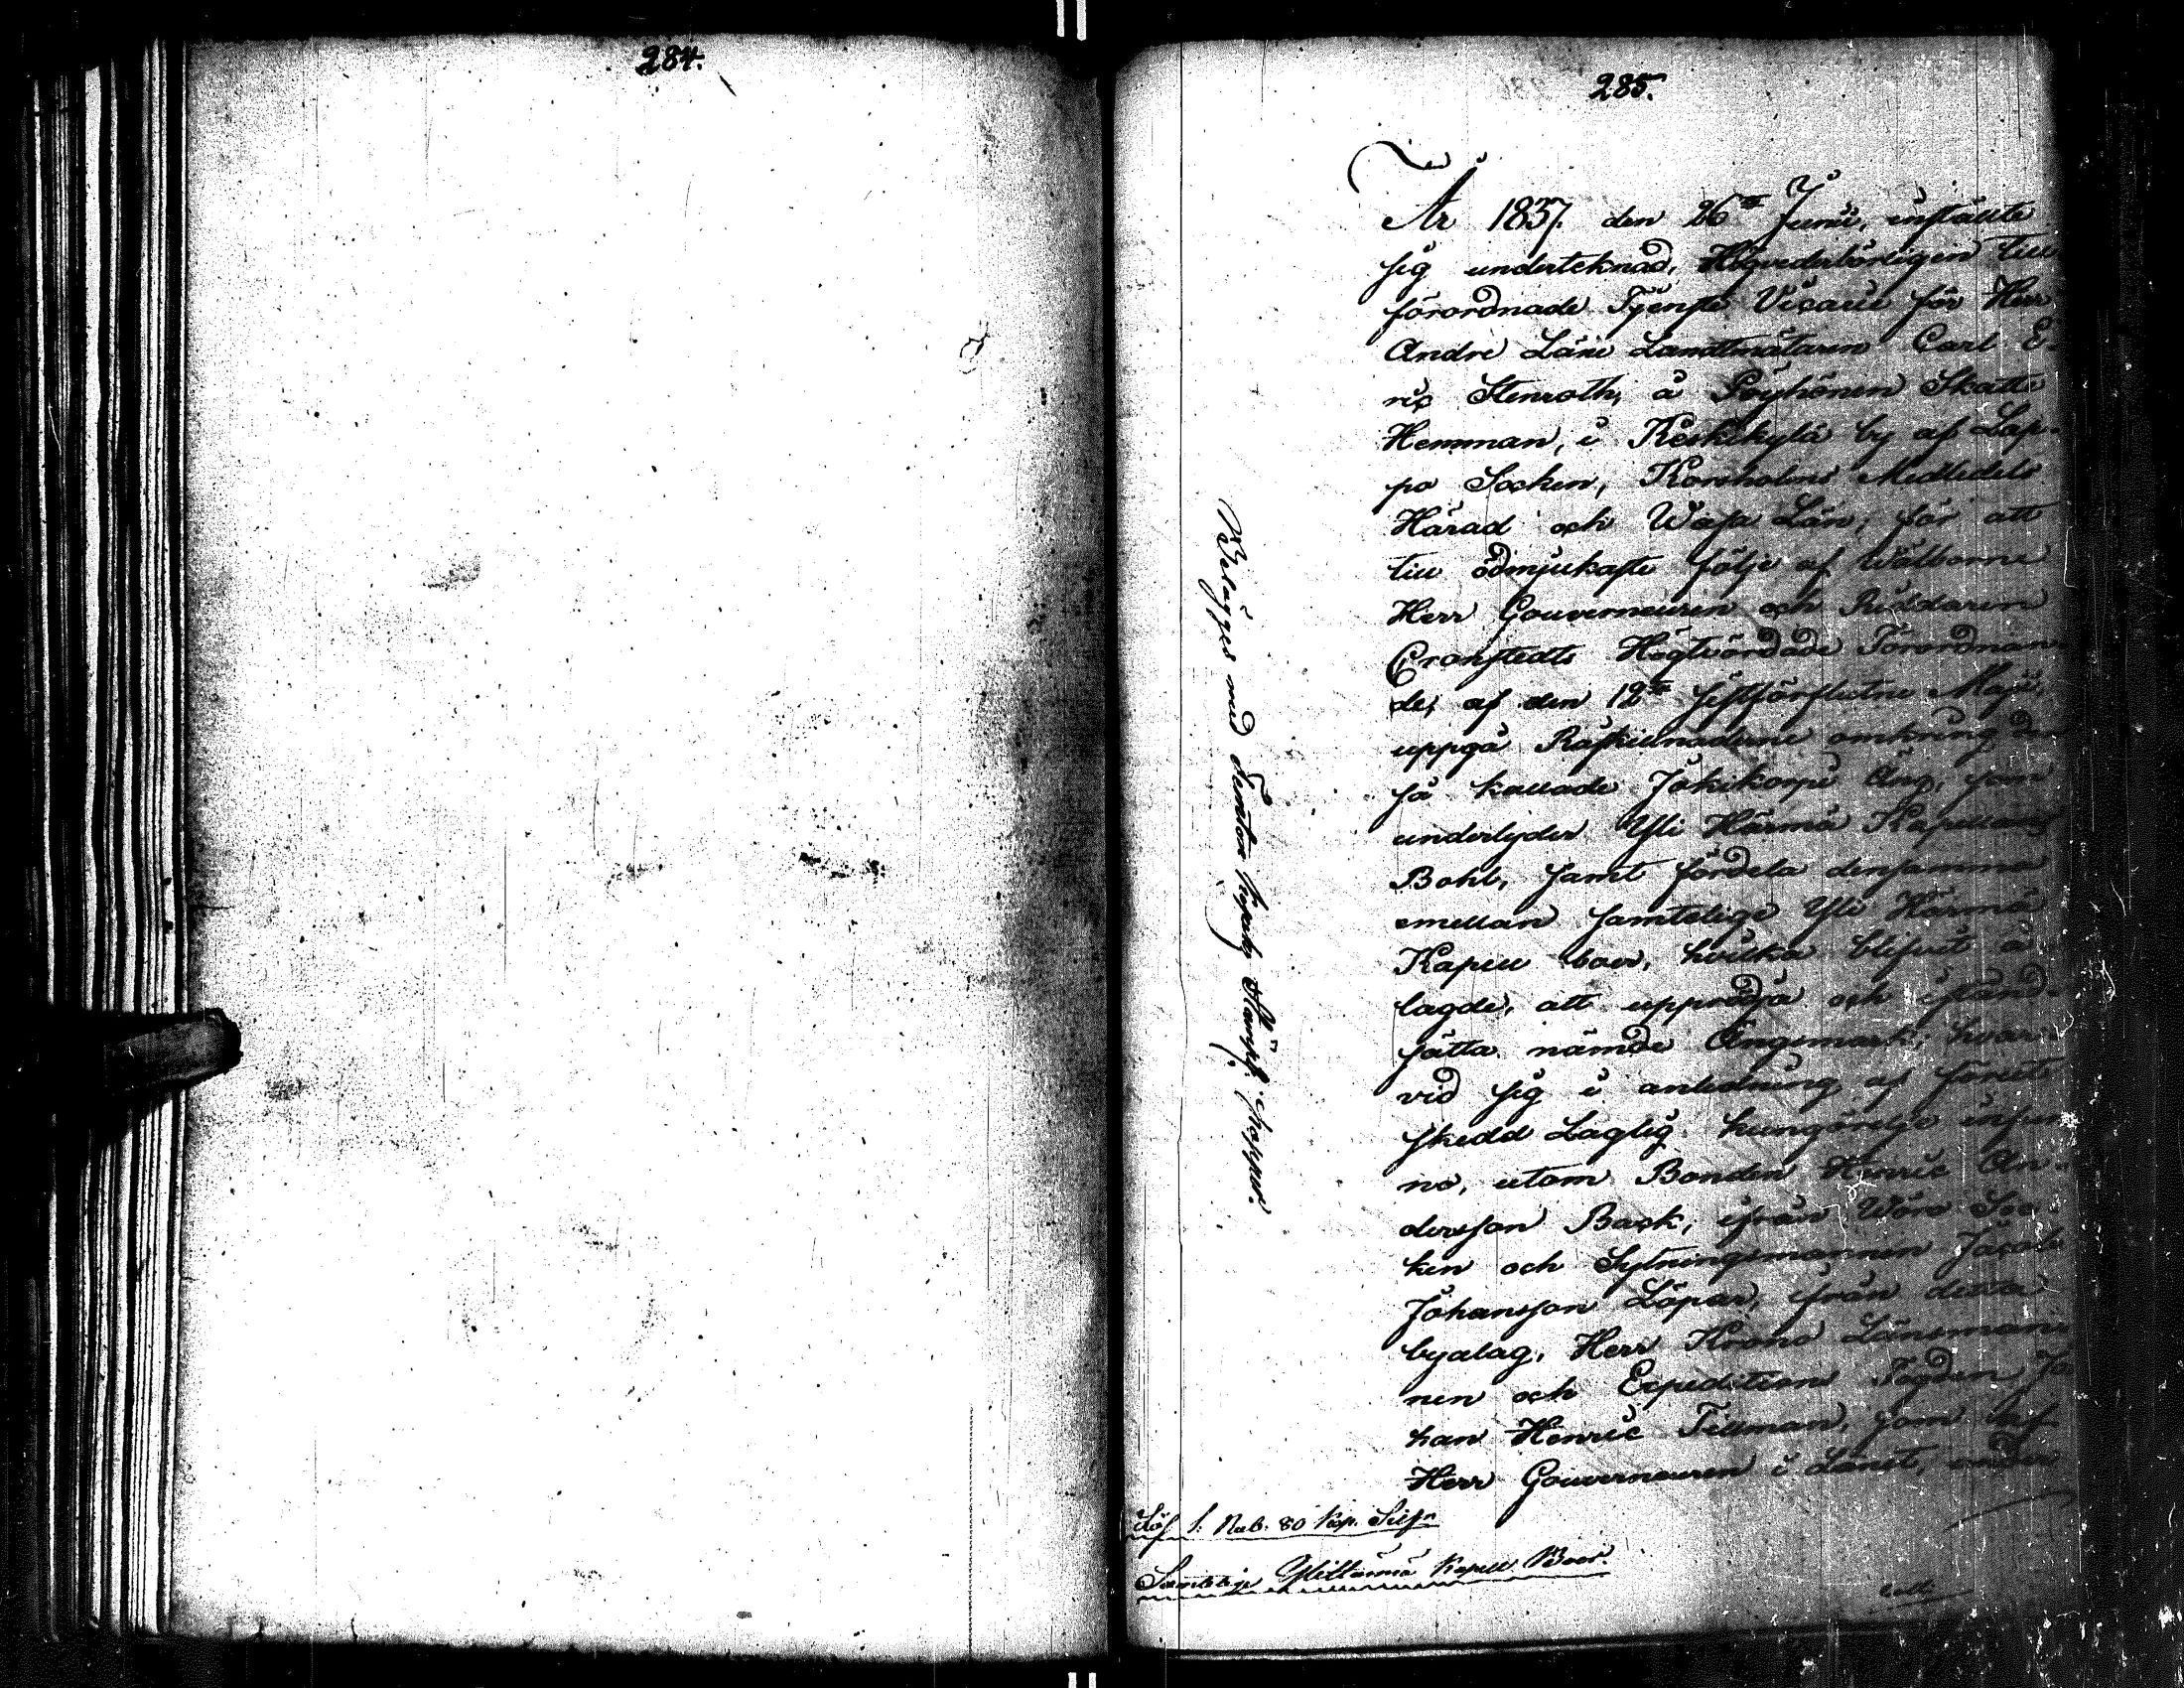 284.
285.
År 1837. den 26te Junii, inställte
sig undertecknad, Högvederbörligen till
förordnade Tjenste Vicarie för Herr
Andre Läns Landtmätaren Carl E-
ric Stenroth, å Pöyhönen Skatte
Hemman, i Keskikylä by af Lap-
po Socken, Korsholms Medledels
Härad och Wasa Län; för att
till ödmjukaste följe af Wälborne
Herr Gouverneuren och Riddaren
Cronstedts Högtvördade Förordnan-
de, af den 12te sistförflutne Maji,
uppgå Råskillnaderne omkring den
så kallade Jokikorpi Äng, som
underlyder Yli Härmä Kapellans
Bohl, samt fördela densamma
emellan samtelige Yli Härmä
Kapell boer, hvilka blifvit å-
lagde, att upprödja och istånd-
sätta nämde Ängsmark; hvar-
vid sig i anledning af förut
skedd Laglig kungörelse infun
no, utom Bonden Henric An-
dersson Back, ifrån Wörå Soc-
ken och Sytningsmannen Jacob
Johansson Löpar, ifrån detta
byalag, Herr Krono Länsman-
nen och Expeditions Fogden Jo
han Henric Tillman, som af
Herr Gouverneuren i Länet, under
Belägges med Femton kopeks Stämpl. Papper.
Lös 1: Rub. 80 kop. Silfr
Samtelige Ylihärmä Kapell Boer.